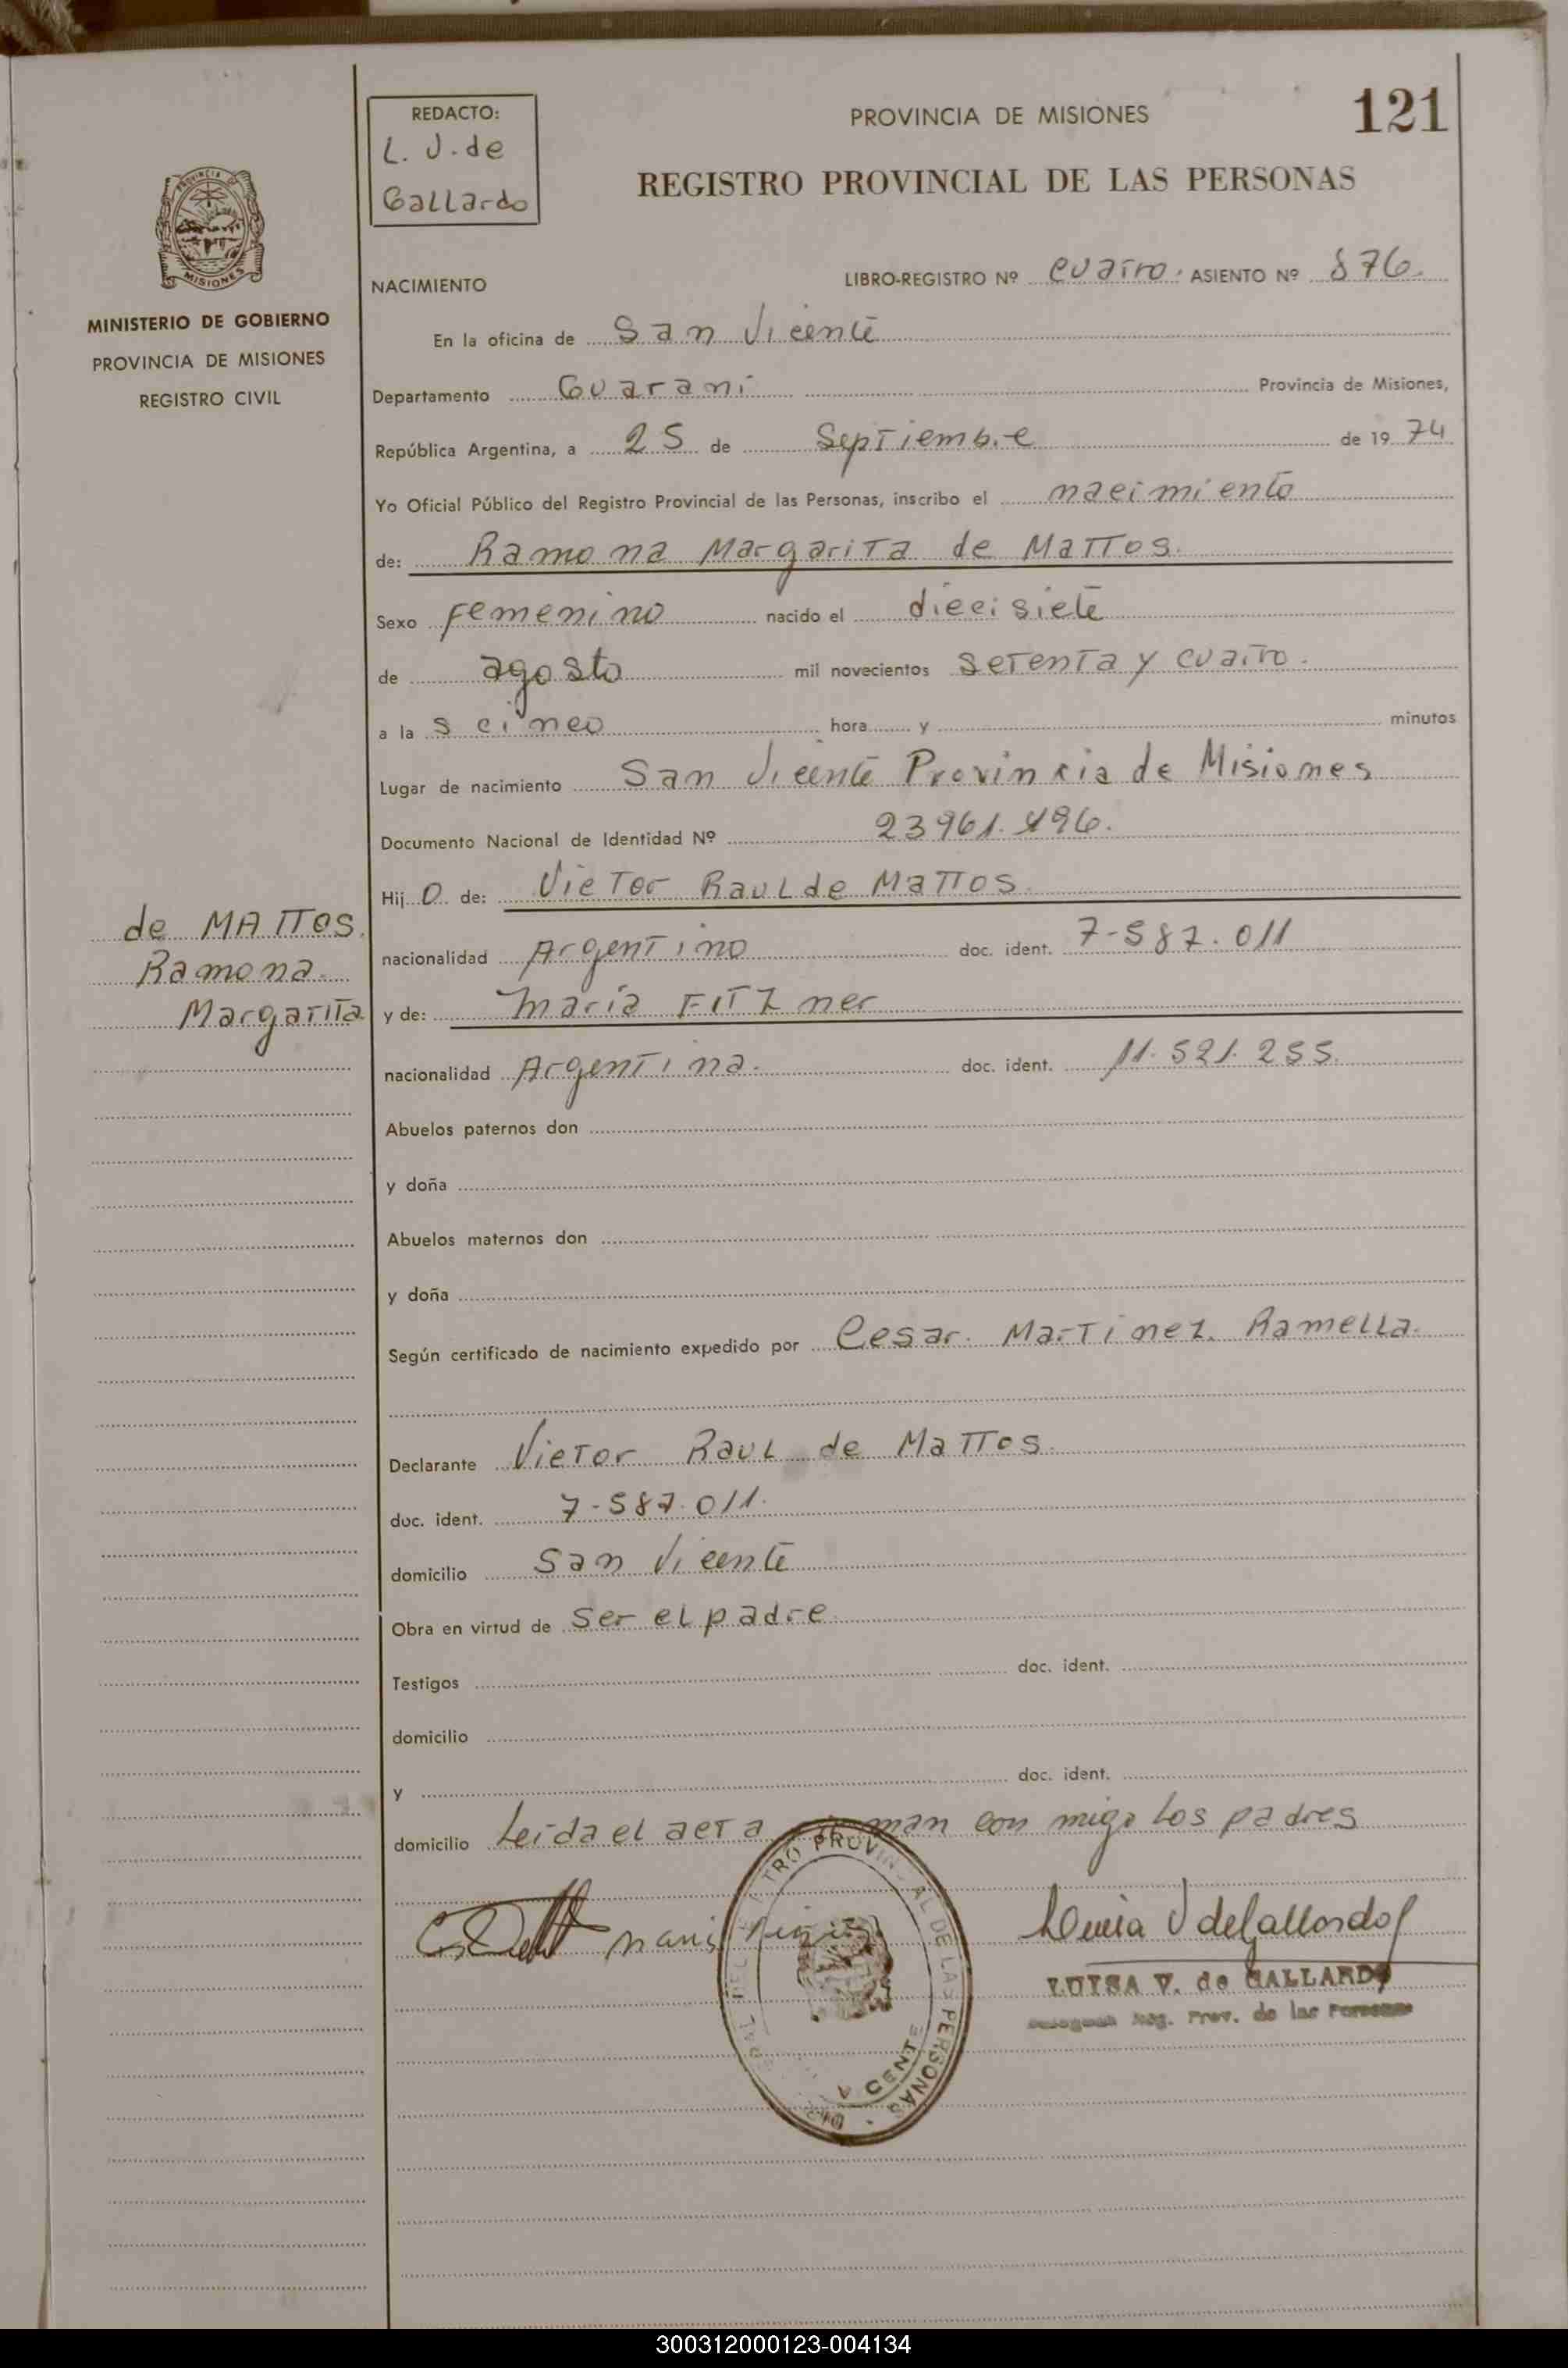 REDACTO:
L. V. de
Gallardo
PROVINCIA DE MISIONES
121
REGISTRO PROVINCIAL DE LAS PERSONAS
PROVINCIA DE
MISIONES
MINISTERIO DE GOBIERNO
PROVINCIA DE MISIONES
REGISTRO CIVIL
NACIMIENTO LIBRO-REGISTRO Nº cuatro. ASIENTO Nº 876.
En la oficina de San Vicente
Departamento Guarani Provincia de Misiones,
República Argentina, a 25 de Septiembre de 19 74
Yo Oficial Público del Registro Provincial de las Personas, inscribo el nacimiento
de: Ramona Margarita de Mattos.
Sexo Femenino nacido el diecisiete
de agosto mil novecientos setenta y cuatro.
a la s cinco hora y minutos
Lugar de nacimiento San Vicente Provincia de Misiones
Documento Nacional de Identidad Nº
Hij O de: Victor Raul de Mattos.
de MATTOS.
Ramona.
Margarita
nacionalidad Argentino doc. ident. 7-587.011
y de: Maria Fitzner
nacionalidad Argentina. doc. ident. 11.521.255.
Abuelos paternos don
y doña
Abuelos maternos don
y doña
Según certificado de nacimiento expedido por Cesar. Martinez. Ramella.
Declarante Victor Raul de Mattos.
doc. ident. 7-587.011.
domicilio San Vicente
Obra en virtud de Ser el padre
Testigos doc. ident.
domicilio
y doc. ident.
domicilio Leida el acta firman con migo los padres
LUISA V. de GALLARDO
Reg. Prov. de las Personas
DE LAS PERSONAS
300312000123-004134